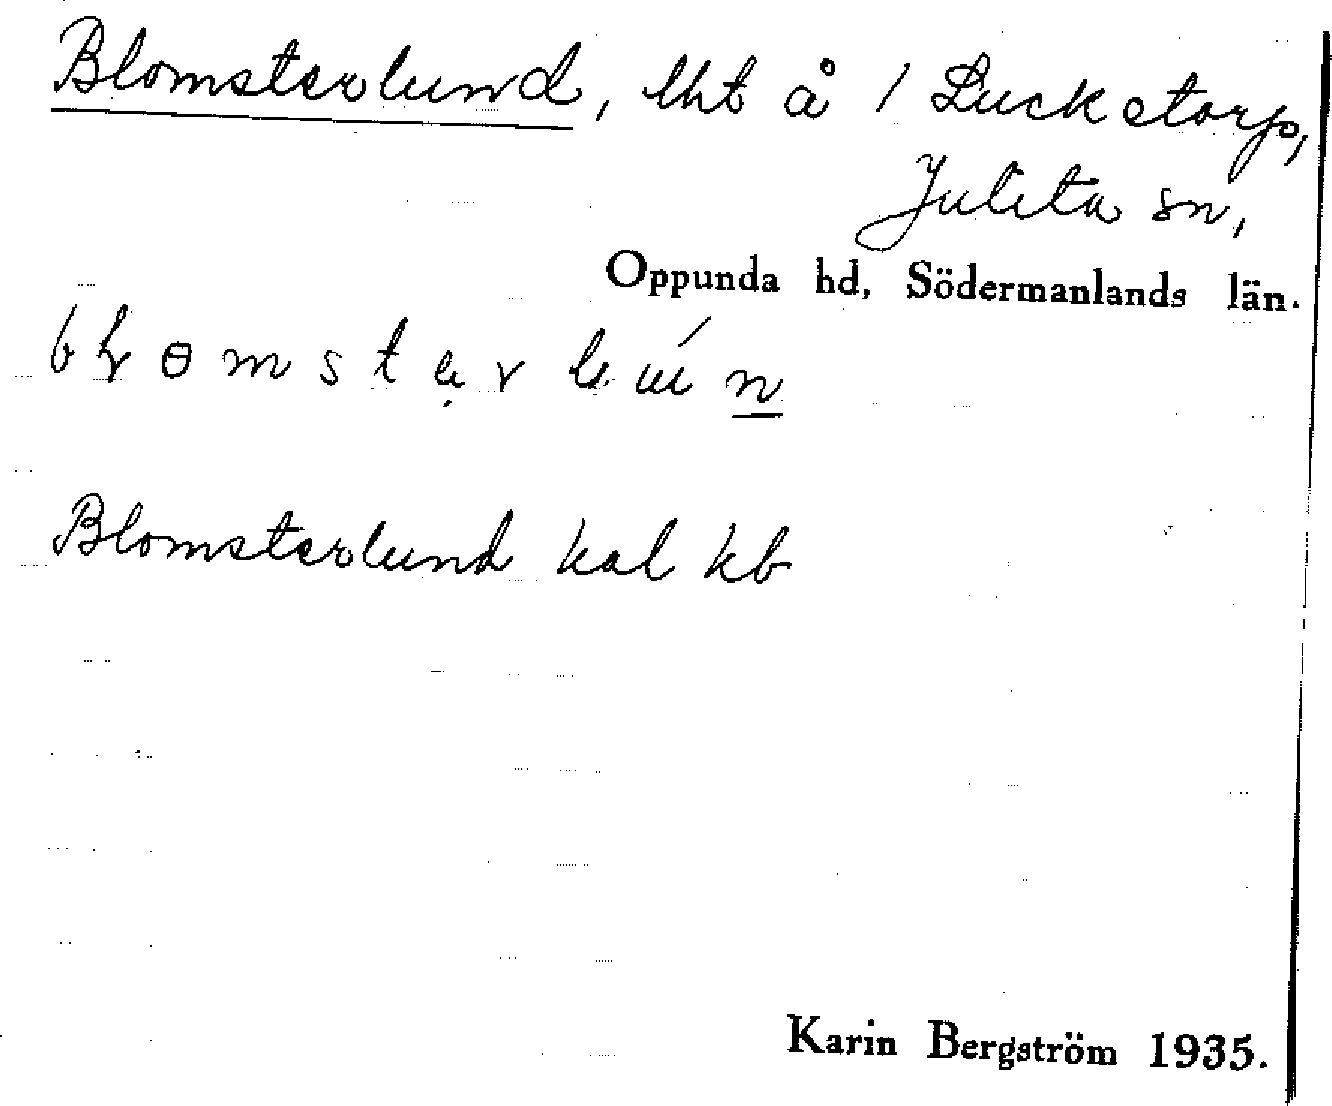 Blomsterlund, lht å 1 Lucketorp,
Julita sn,
Oppunda hd, Södermanlands län.
Blomsterlund kal kb
Karin Bergström 1935.